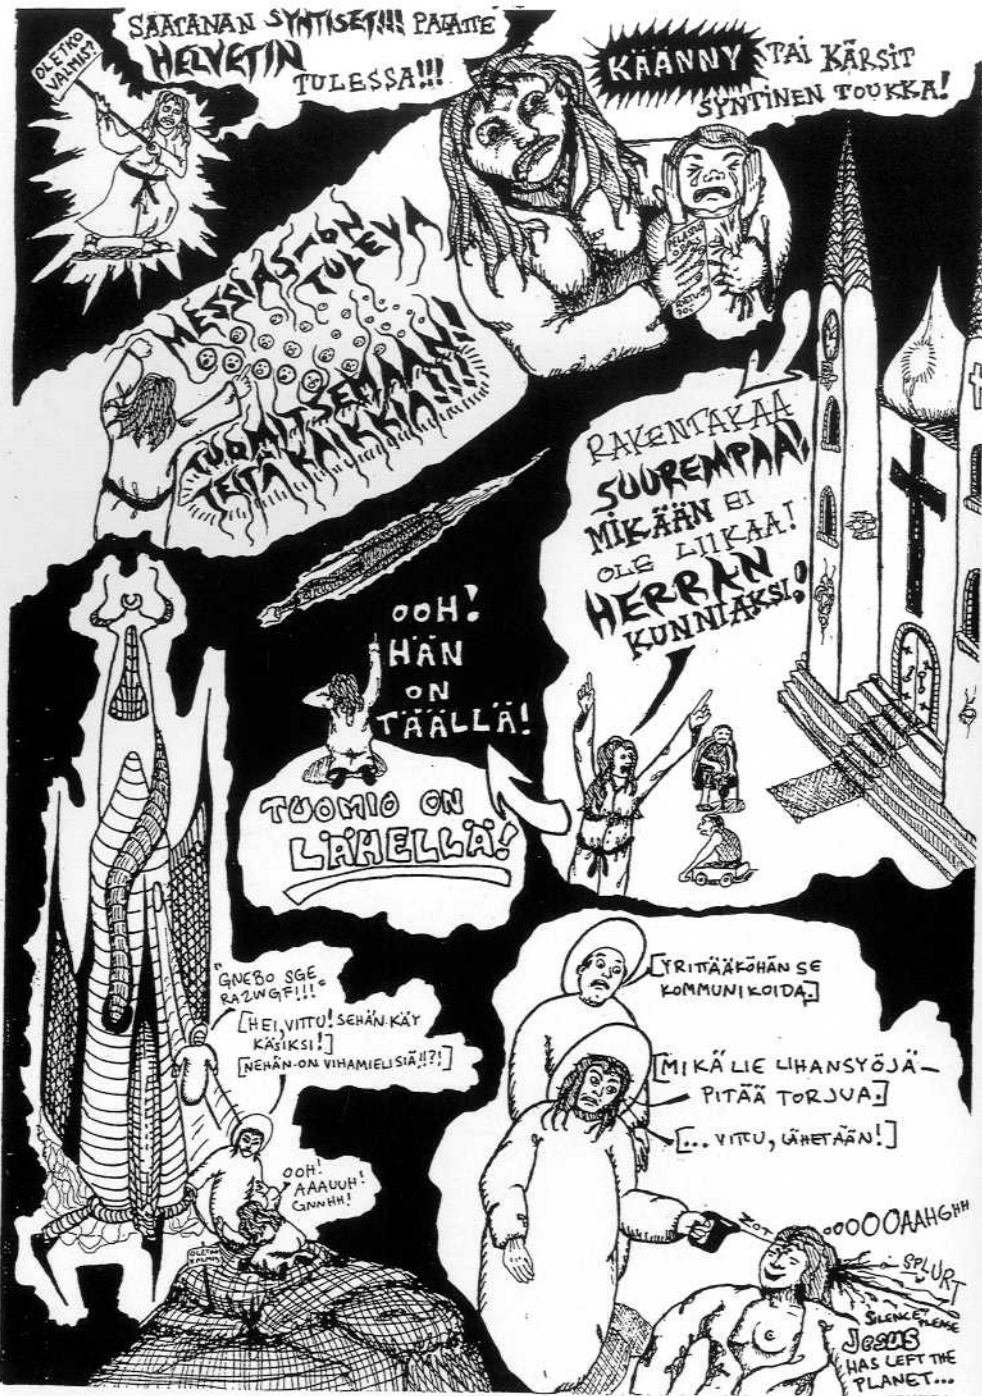 OLETKO
VALMIS?
SAATANAN SYNTISET!!! PALATTE
HELVETIN
TULESSA!!!
KÄÄNNY TAI KÄRSIT
SYNTINEN TOUKKA!
MESSIAS ON
TULEVA
TUOMITSEMAAN!!
TEITÄ KAIKKIA!!!
RAKENTAKAA
SUUREMPAA!
MIKÄÄN EI
OLE LIIKAA!
HERRAN
KUNNIAKSI!
OOH!
HÄN
ON
TÄÄLLÄ!
TUOMIO ON
LÄHELLÄ!
"GNEBO SGE
RAZWGF!!!"
[HEI, VITTU! SEHÄN KÄY
KÄSIKSI!]
[NEHÄN ON VIHAMIELISIÄ!!?!]
OOH!
AAAUUH!
GNNHH!
OLETKO
VALMIS
[YRITTÄÄKÖHÄN SE
KOMMUNIKOIDA.]
[MIKÄ LIE LIHANSYÖJÄ–
PITÄÄ TORJUA.]
[... VITTU, LÄHETÄÄN!]
ZOT
OOOOOOAAHGHH
SPLURT
SILENCE PLEASE
JESUS
HAS LEFT THE
PLANET...